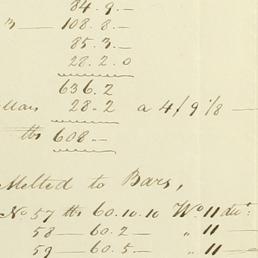 84.9.-
108.8.-
85.3.-
28.2.0
636.2
28.2 a 4/9 1/8 —
℔s 608 —
Melted to Bars,
No 57 ℔s 60.10.10 Wo 11 dwt:
58 — 60.2 — " 11 —
59 — 60.5 — " 11 —